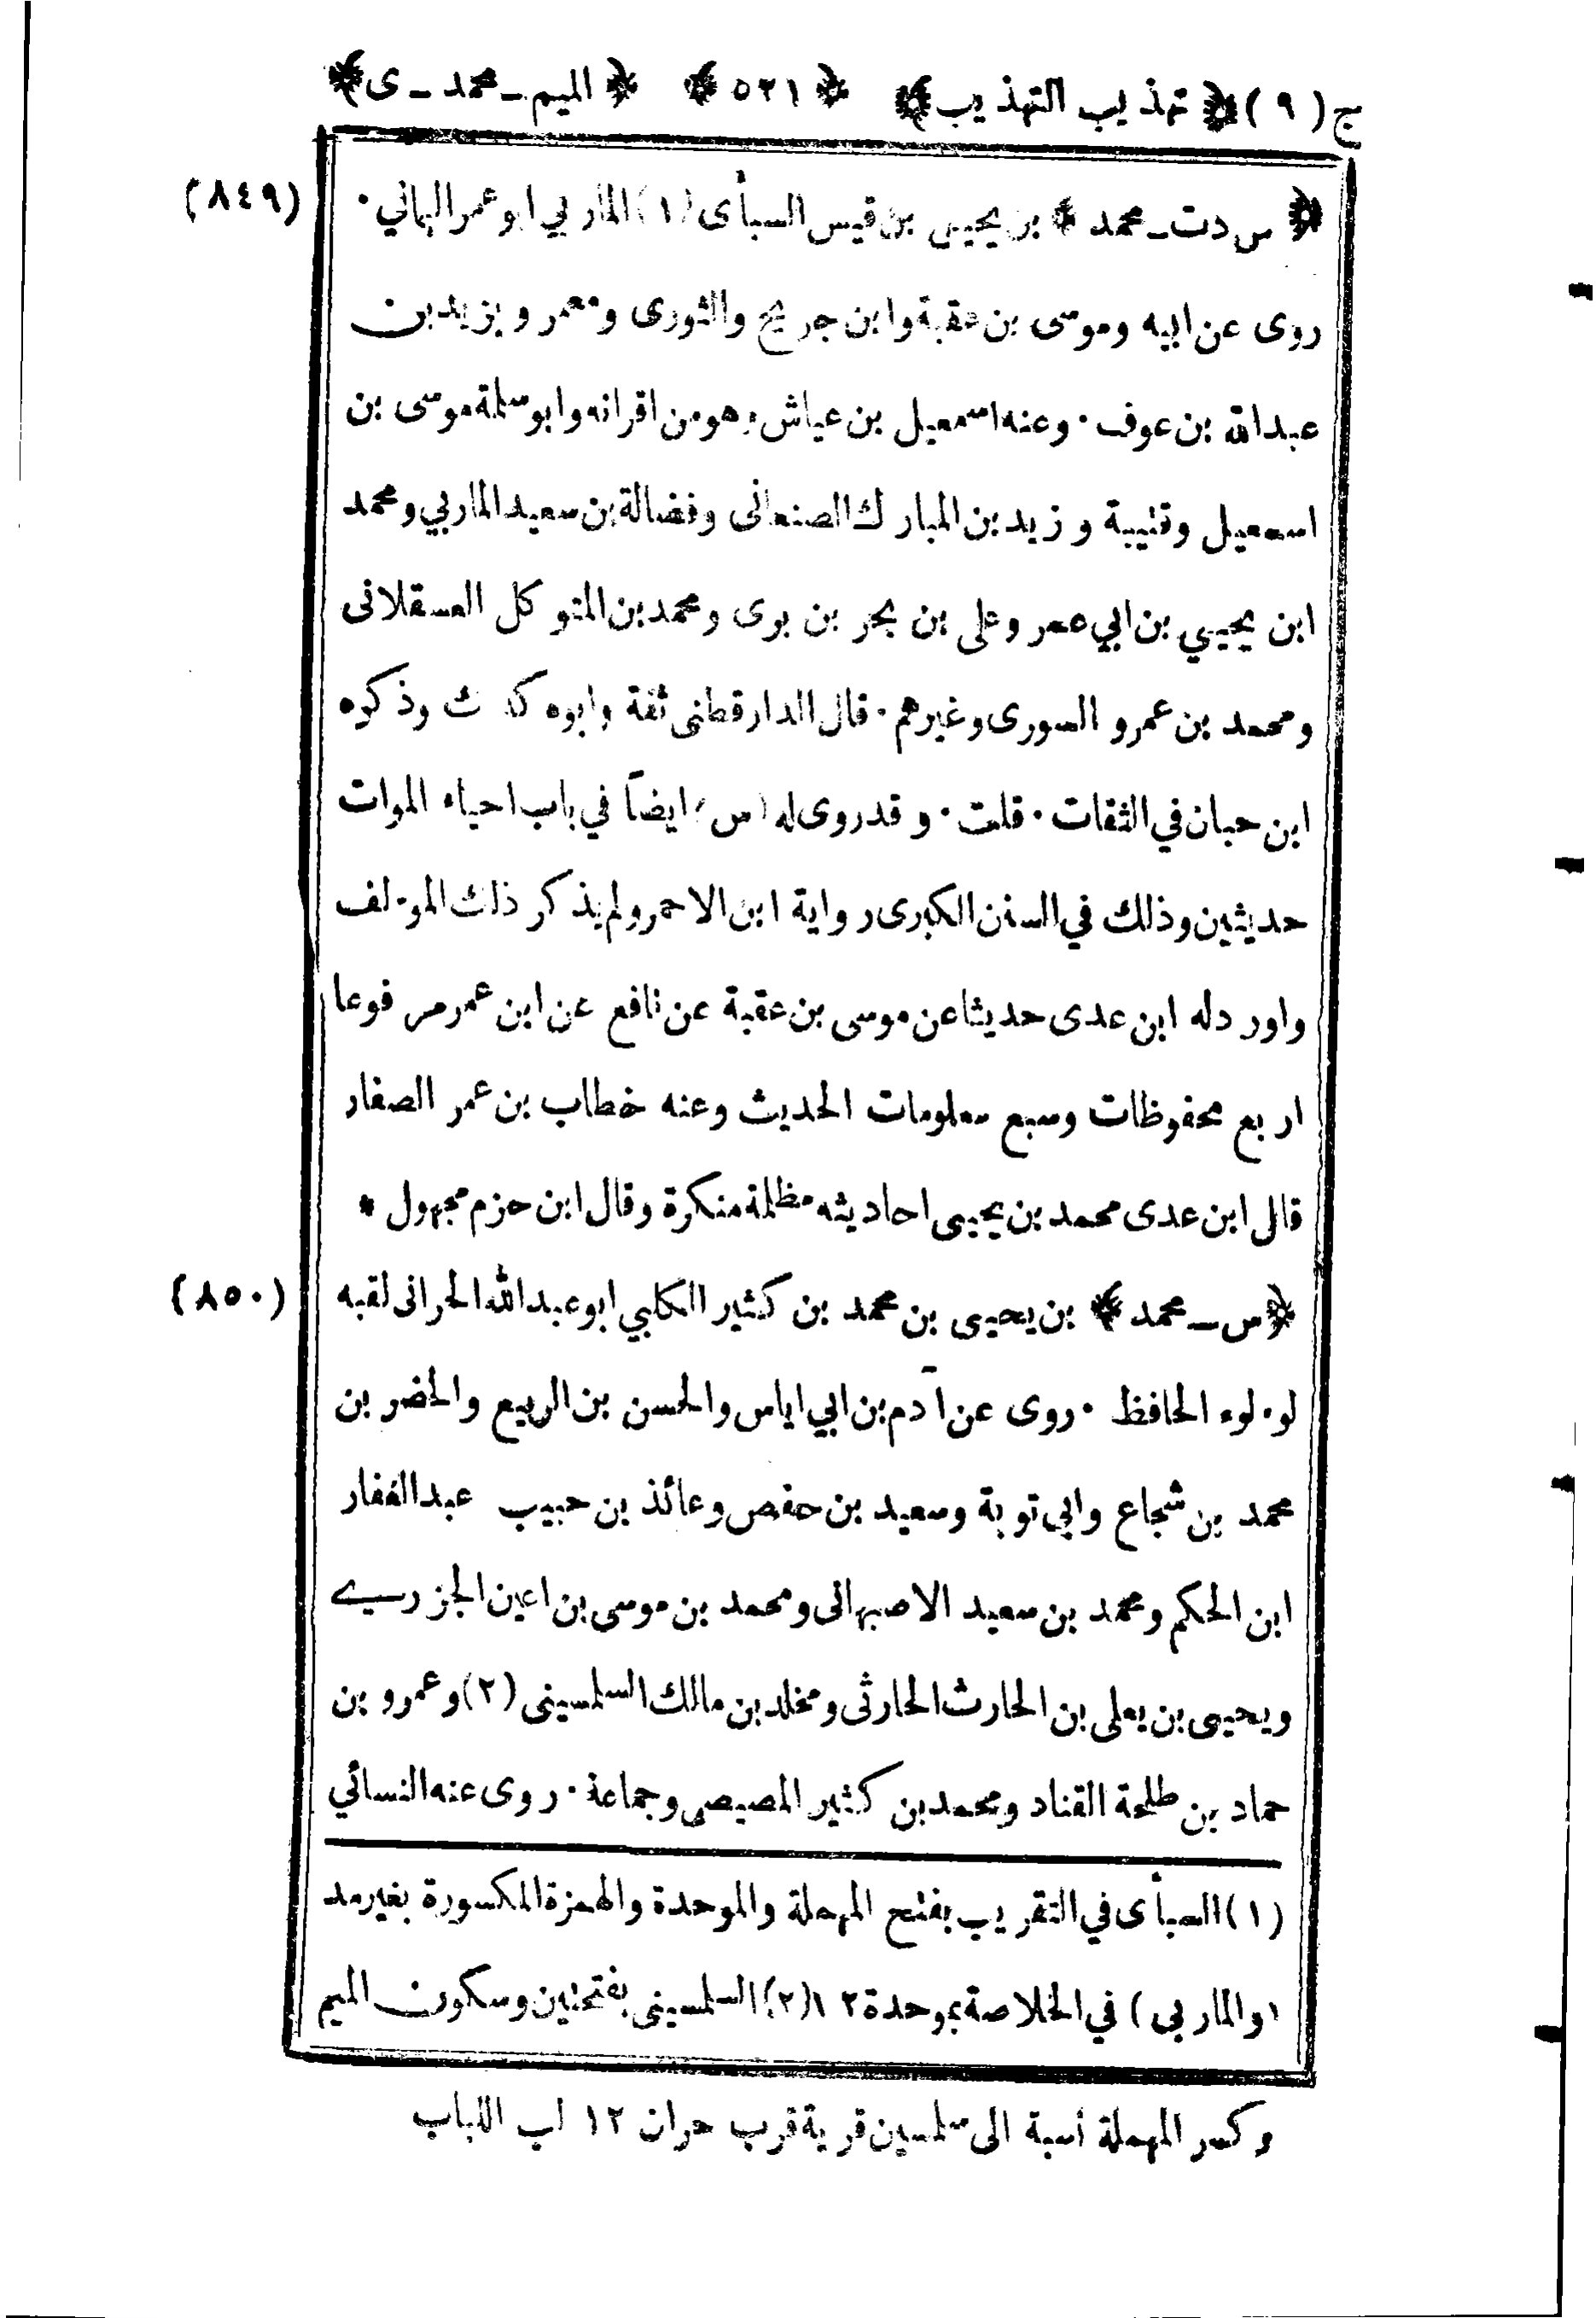 ج (٩) ﴿ تهذيب التهذيب ﴾ ﴿ ٥٢١ ﴾ ﴿ الميم ـ محمد ـ ى ﴾
﴿ س دت ـ محمد ﴾ بن يحيى بن قيس السبأى (١) الماربي ابو عمر اليماني ٠ (٨٤٩)
روى عن ابيه وموسى بن عقبة وابن جريج والثورى ومعمر ويزيد بن
عبدالله بن عوف ٠ وعنه اسمعيل بن عياش وهو من اقرانه وابو سلمة موسى بن
اسمعيل وقتيبة و زيد بن المبارك الصنعانى وفضالة بن سعيد الماربي ومحمد
ابن يحيي بن ابي عمر وعلى بن بحر بن برى ومحمد بن المتوكل العسقلانى
ومحمد بن عمرو السورى وغيرهم ٠ قال الدار قطنى ثقة وابوه كذلك وذكره
ابن حبان في الثقات ٠ قلت ٠ و قد روى له (س) ايضاً في باب احياء الموات
حديثين وذلك في السنن الكبرى رواية ابن الاحمر ولم يذكر ذلك المؤلف
واورد له ابن عدى حديثا عن موسى بن عقبة عن نافع عن ابن عمر مرفوعا
اربع محفوظات وسبع معلومات الحديث وعنه خطاب بن عمر الصفار
قال ابن عدى محمد بن يحيى احاديثه مظلمة منكرة وقال ابن حزم مجهول *
﴿ س ـ محمد ﴾ بن يحيى بن محمد بن كثير الكلبي ابو عبدالله الحرانى لقبه (٨٥٠)
لؤلؤ الحافظ ٠ روى عن آدم بن ابي اياس والحسن بن الربيع والخضر بن
محمد بن شجاع وابي توبة وسعيد بن حفص وعائذ بن حبيب عبد الغفار
ابن الحكم ومحمد بن سعيد الاصبهانى ومحمد بن موسى بن اعين الجزرى
ويحيى بن يعلى بن الحارث الحارثى ومخلد بن مالك السلمسينى (٢) وعمرو بن
حماد بن طلحة القناد ومحمد بن كثير المصيصى وجماعة ٠ روى عنه النسائي
(١) السبأى في التقريب بفتح المهملة والموحدة والهمزة المكسورة بغير مد
(والماربى) في الخلاصة بموحدة ١٢ (٢) السلمسينى بفتحتين وسكون الميم
وكسر المهملة نسبة الى سلمسين قرية قرب حران ١٢ لب اللباب